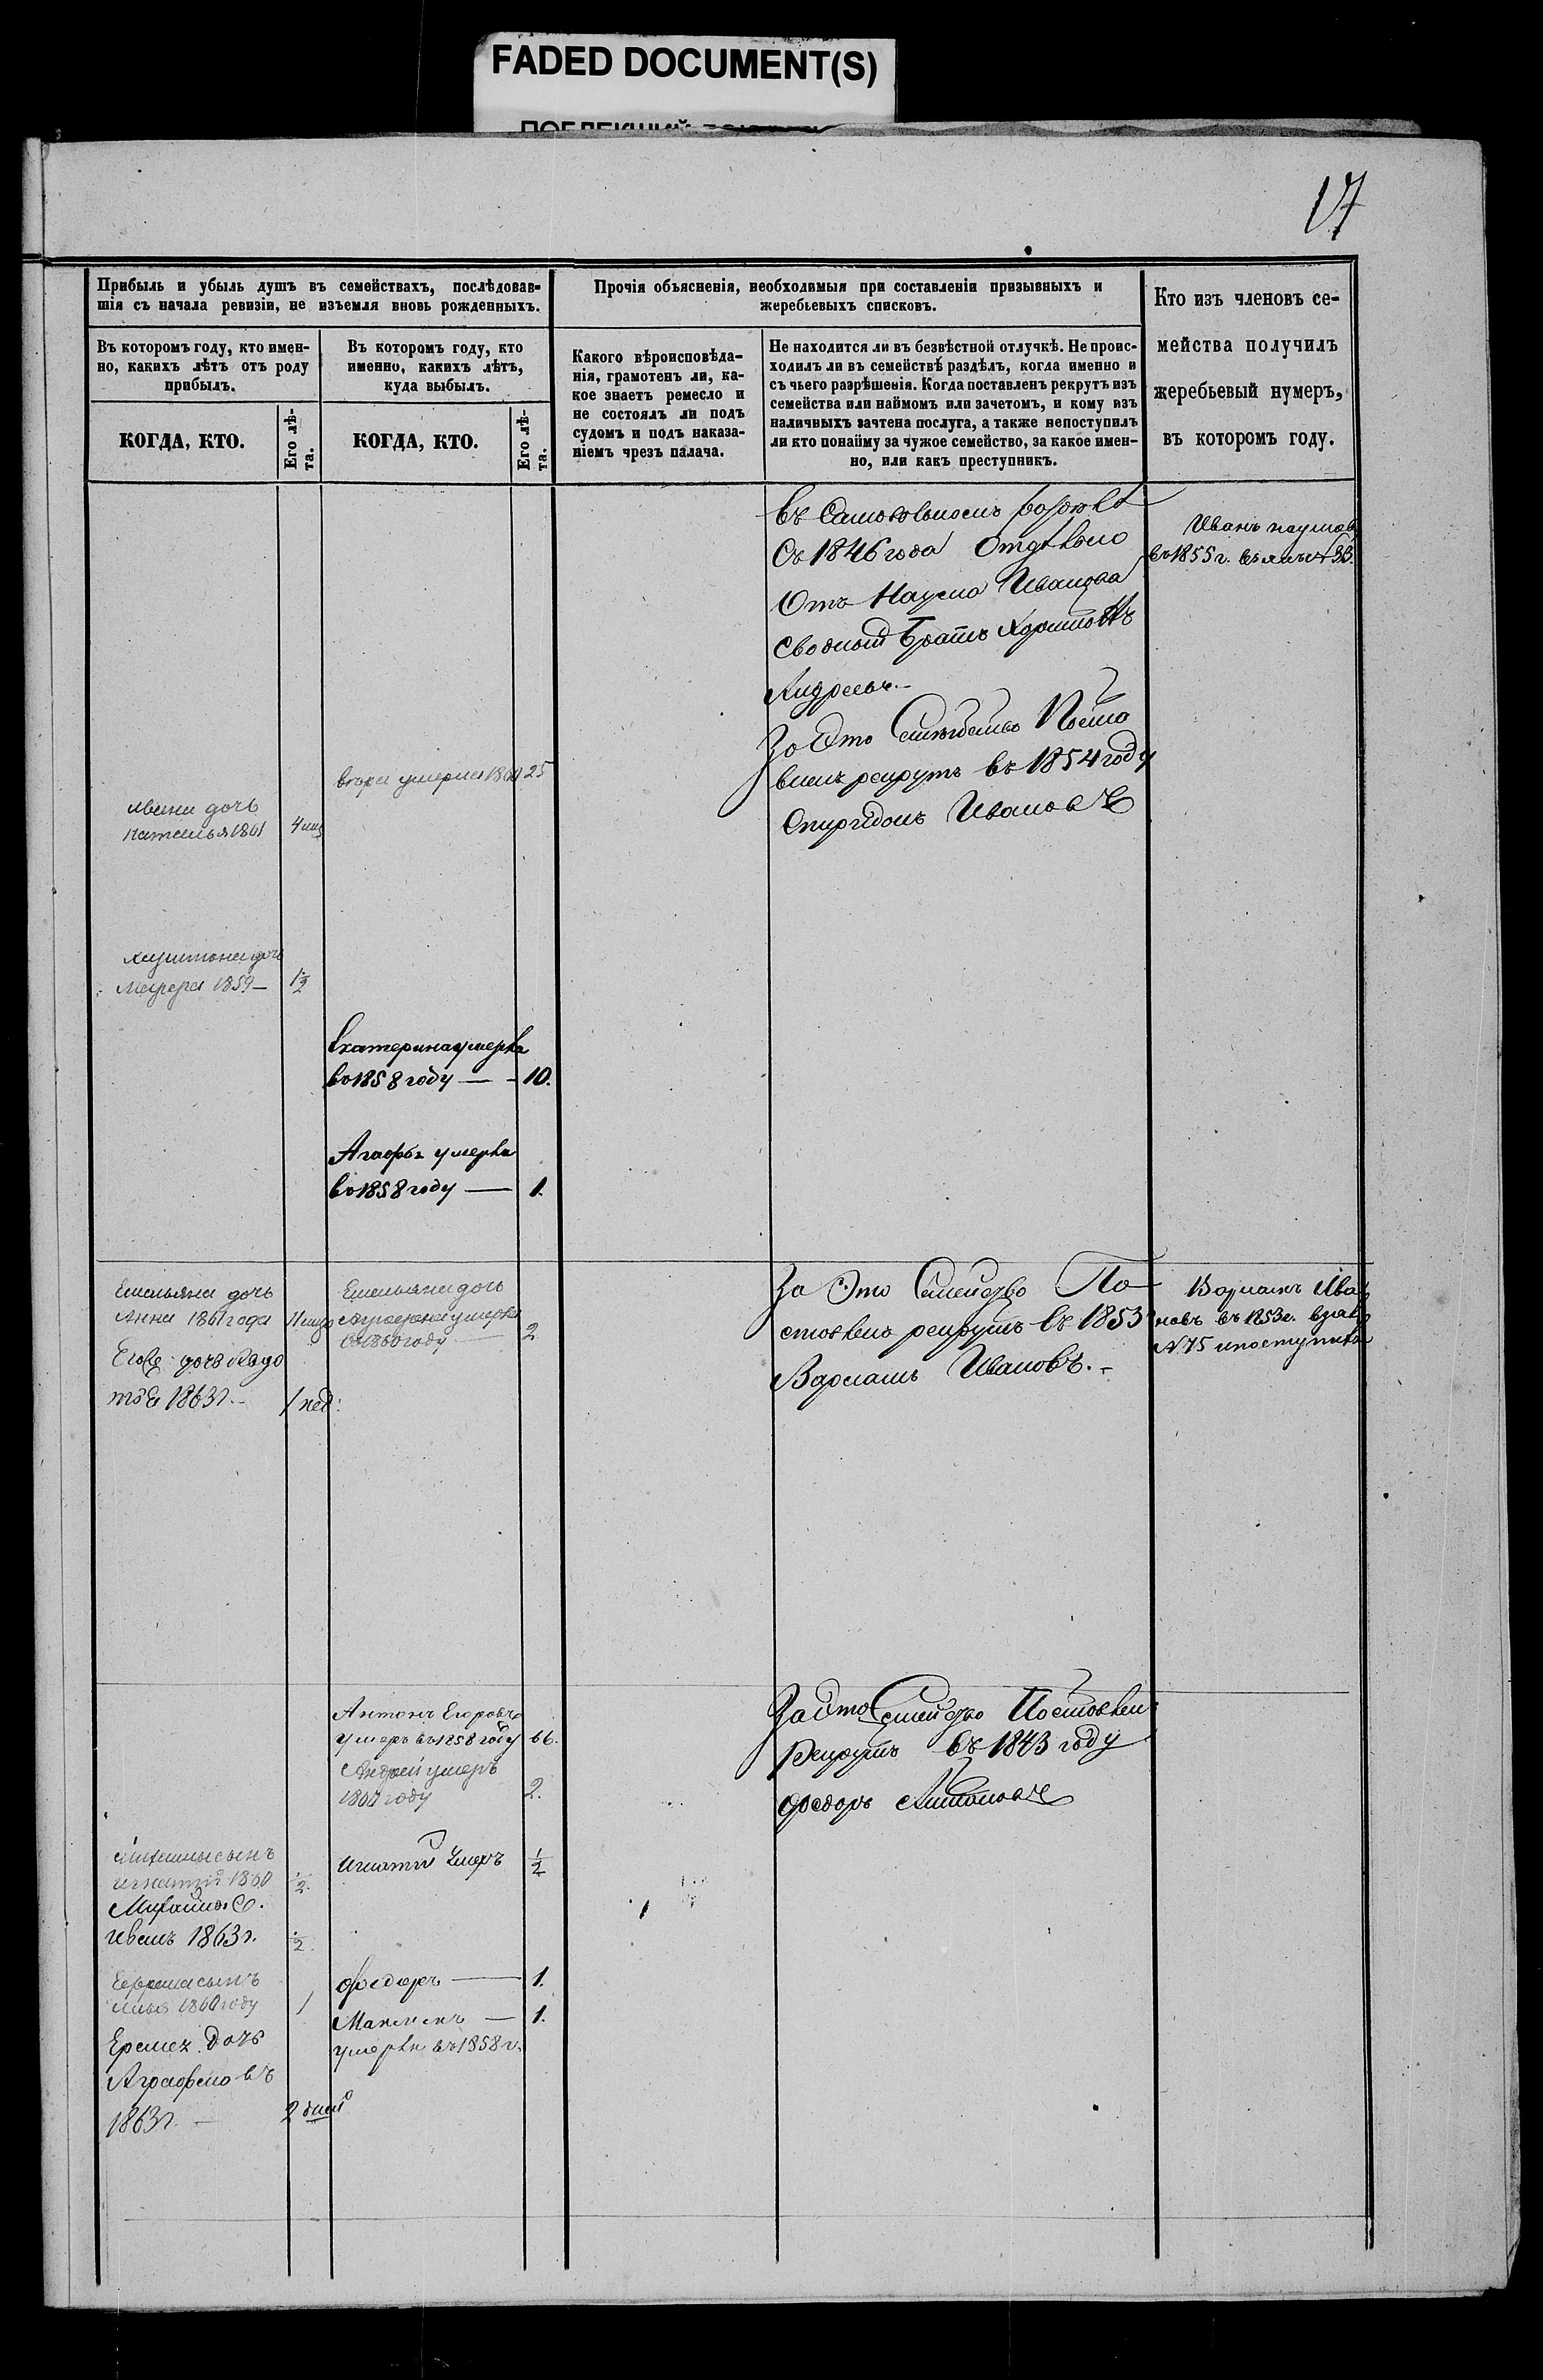 FADED DOCUMENT(S)
17
Прибыль и убыль душъ въ семействахъ, послѣдовав-
шія съ начала ревизіи, не изъемля вновь рожденныхъ.
Въ которомъ году, кто имен-
но, какихъ лѣтъ отъ роду
прибылъ.
КОГДА, КТО.
Его лѣ-
та.
Въ которомъ году, кто
именно, какихъ лѣтъ,
куда выбылъ.
КОГДА, КТО.
Его лѣ-
та.
Прочія объясненія, необходимыя при составленіи призывныхъ и
жеребьевыхъ списковъ.
Какого вѣроисповѣда-
нія, грамотенъ ли, ка-
кое знаетъ ремесло и
не состоялъ ли подъ
судомъ и подъ наказа-
ніемъ чрезъ палача.
Не находится ли въ безвѣстной отлучкѣ. Не проис-
ходилъ ли въ семействѣ раздѣлъ, когда именно и
съ чьего разрѣшенія. Когда поставленъ рекрутъ изъ
семейства или наймомъ или зачетомъ, и кому изъ
наличныхъ зачтена послуга, а также непоступилъ
ли кто понайму за чужое семейство, за какое имен-
но, или какъ преступникъ.
Кто изъ членовъ се-
мейства получилъ
жеребьевый нумеръ,
въ которомъ году.
Въ Самовольномъ
Съ 1846 года
Отъ Наума Иванова
Сводный Братъ
Андреевъ.-
За Это Семейство Поста
вленъ рекрутъ въ 1854 году
Спиридонъ Ивановъ
Иванъ наумовъ
въ 1855 г. 33.
умерла 25
дочь
наталья 1861 4 мѣс
дочь
1859 — 1½
Екатерина умерла
во 1858 году — - 10.
умерла
во 1858 году — 1.
Емельяна дочь
Анна 1861 года
дочь
1863 г. - 1 нед:
Емельяна дочь
умерла
во 1860 году — 2
За Это Семейство По
ставленъ рекрутъ въ 1853
Варламъ Ивановъ. -
Варламъ Ива
новъ въ 1853 г. взялъ
N 75 и поступилъ
Антонъ Егоровъ
умеръ въ 1858 году 66.
Андрей умеръ
году 2.
За Это Семейство Поставлен
Рекрутъ въ 1843 году
федоръ Антоновъ
сынъ
игнатій 1860 ½.
Михаила С.
иванъ 1863 г. ½.
игнатій Умеръ ½
Ефрема сынъ
илья 1860 году 1
федоръ — 1.
Максимъ — 1.
умерли въ 1858 г.
Еремея. Дочь
Аграфена въ
1863 г. — 2 дней